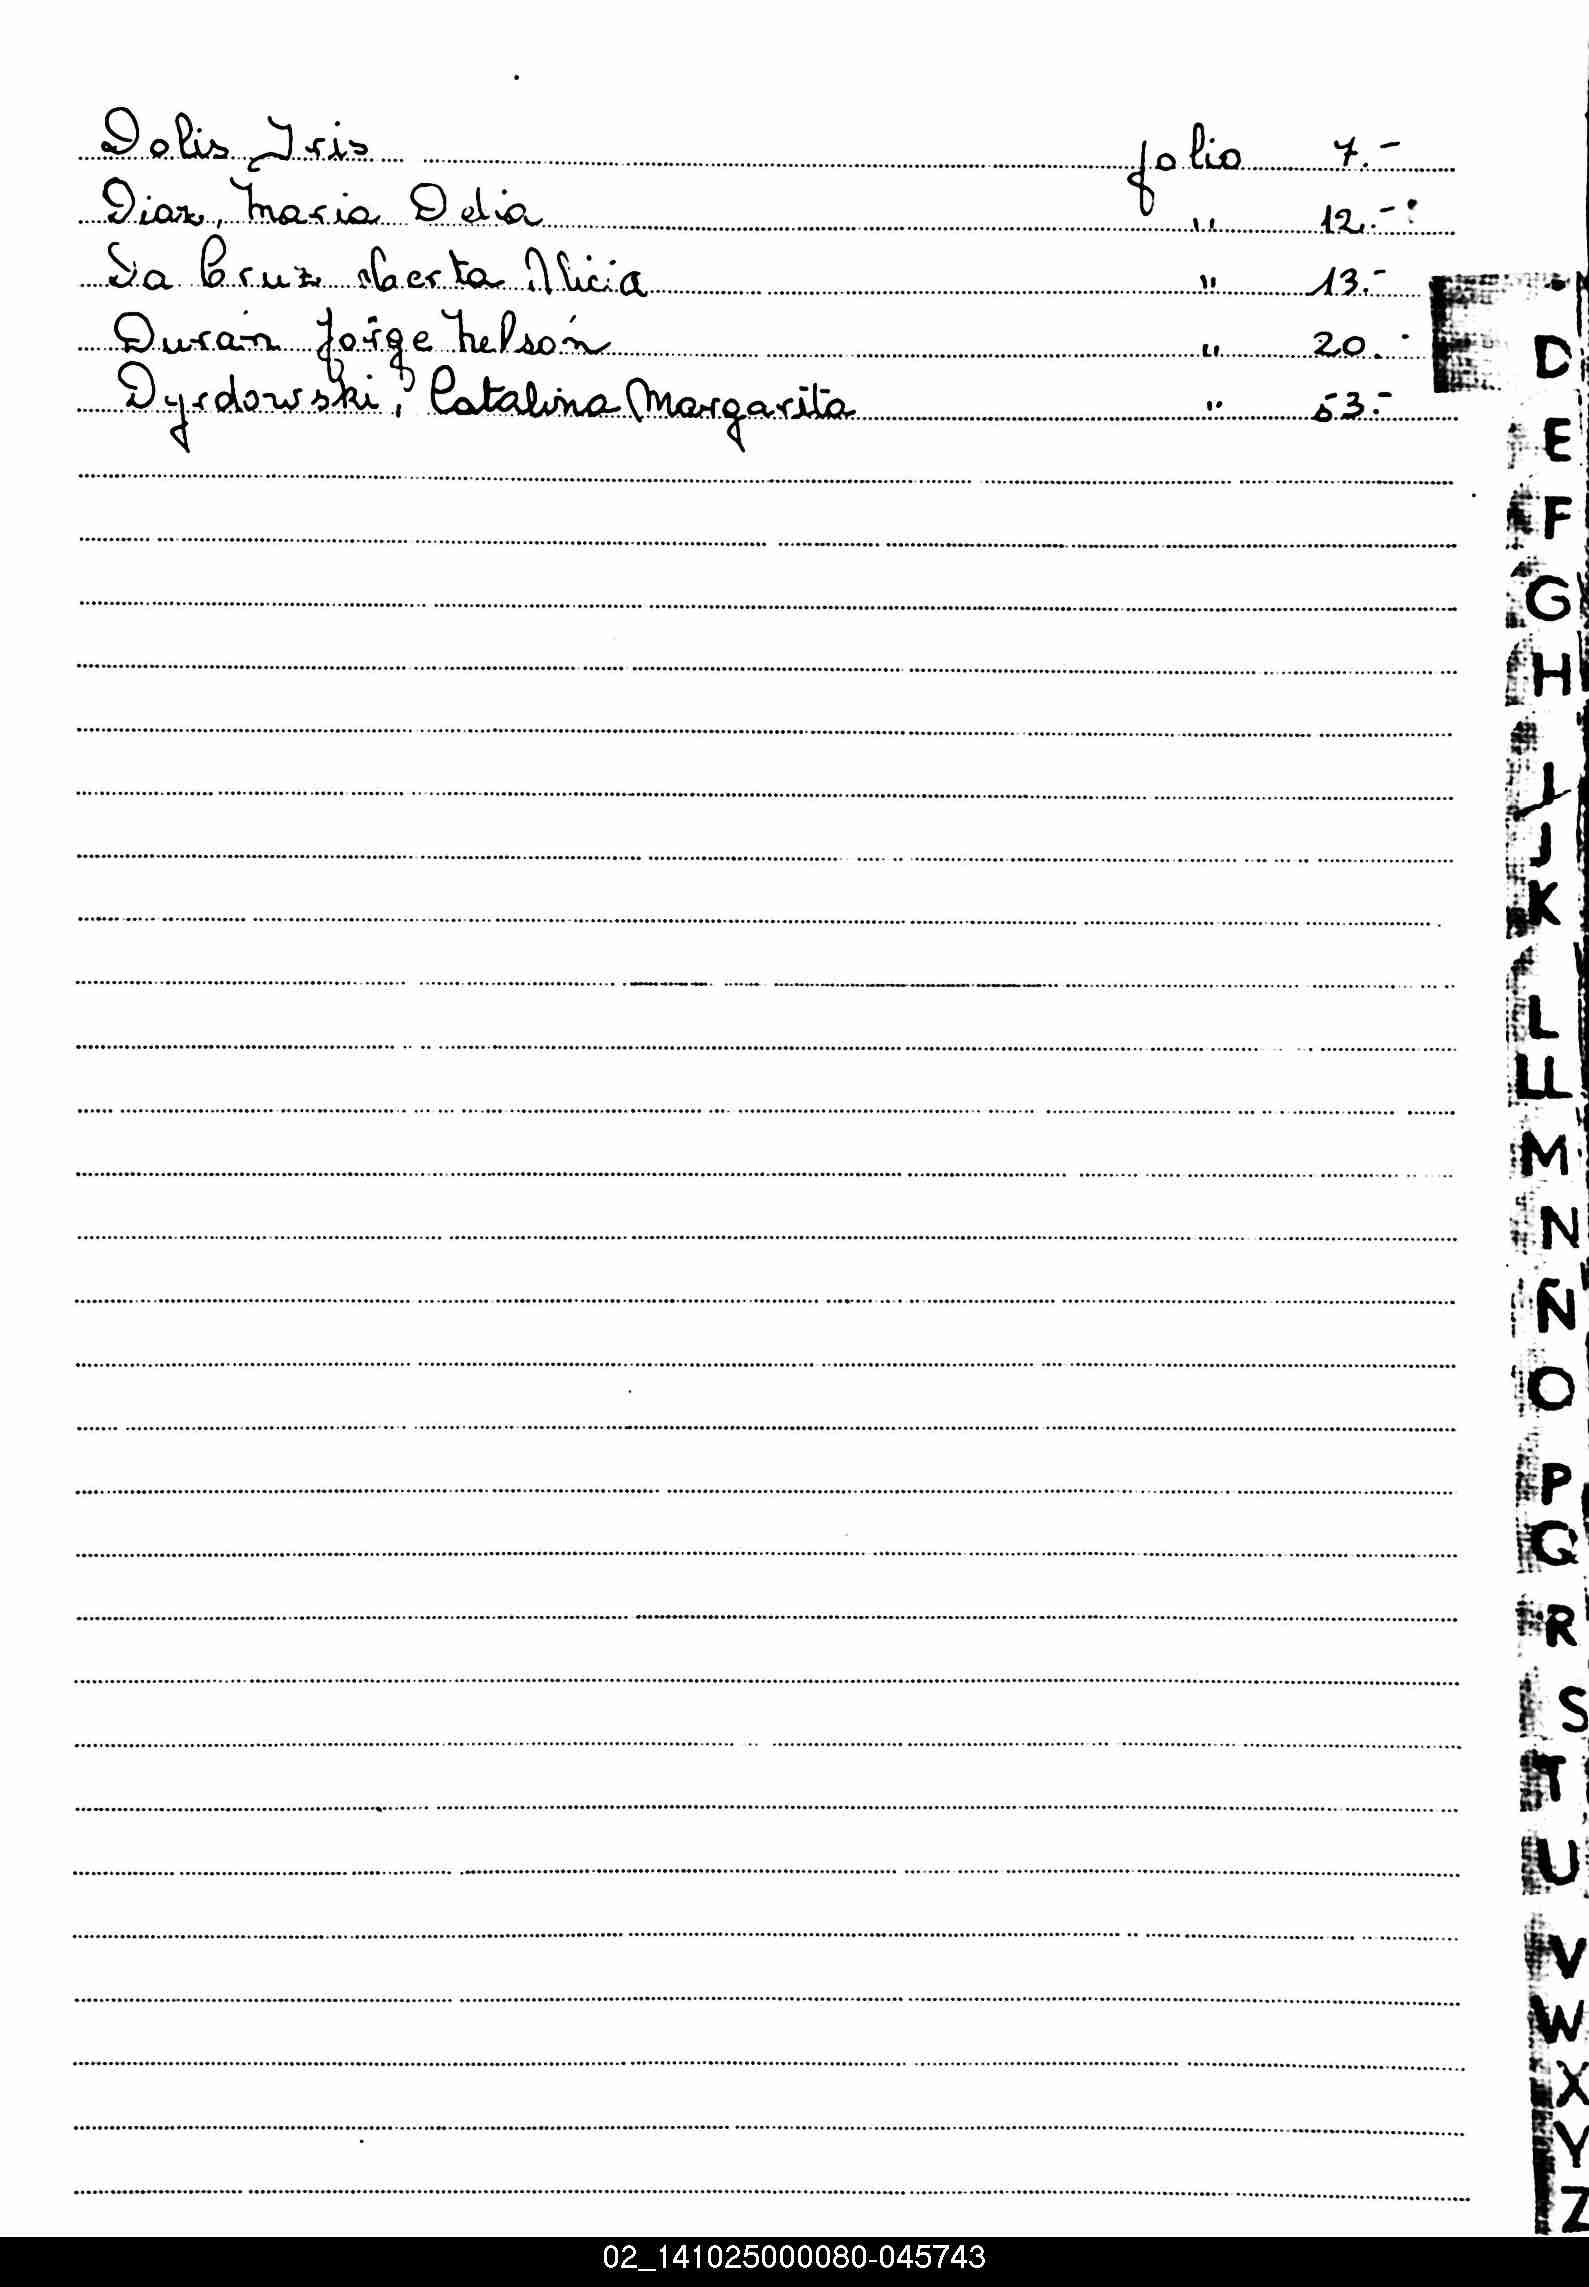 Dolis Iris folio 7.-
Diaz, Maria Delia " 12.-
Da Cruz Berta Alicia " 13.-
Durán Jorge Nelsón " 20.-
Dyrdowski, Catalina Margarita " 53.-
D
E
F
G
H
I
J
K
L
LL
M
N
Ñ
O
P
Q
R
S
T
U
V
W
X
Y
Z
02_141025000080-045743